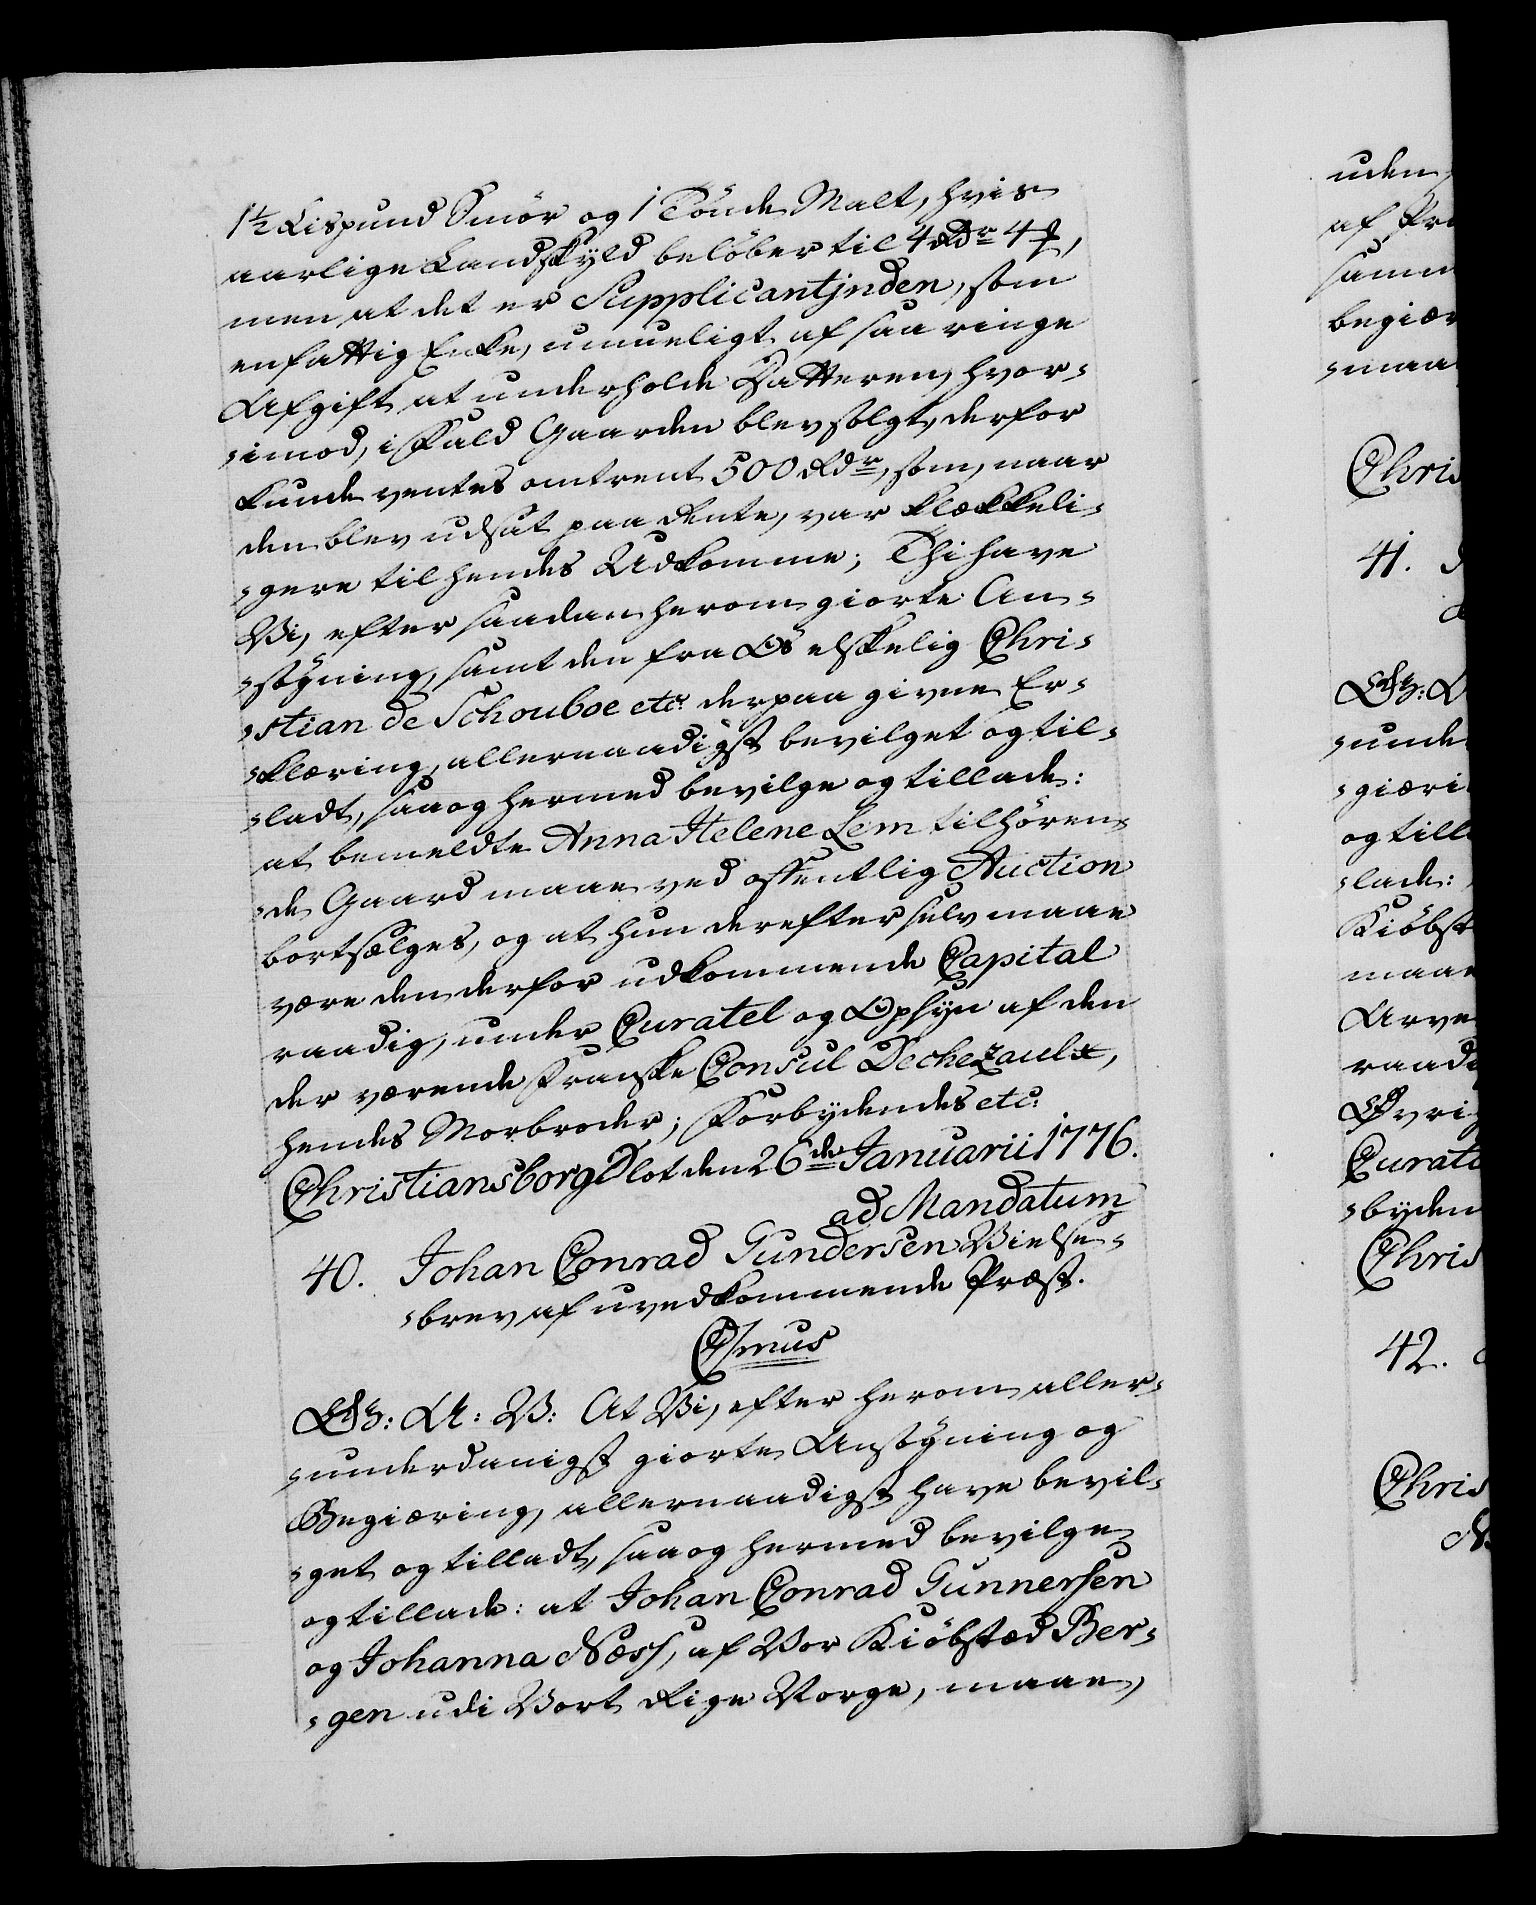 1½ Lispund Smör og 1 Tönde Malt, hvis
aarlige Landskyld belöber til 4 Rdr 4 ß,
men at det er Supplicantjnden, som
en fattig Enke, umueligt af saa ringe
Afgift at underholde Datteren, hvor-
-imod, ifald Gaarden blev solgt, derfor
kunde ventes omtrent 500 Rdr, som, naar
den blev udsat paa Rente, var klækkeli-
-gere til hendes Udkomme; Thi have
Vi, efter saadan herom giorte An-
-søgning, samt den fra Os elskelig Chri-
-stian de Schouboe etc: derpaa givne Er-
-klæring, allernaadigst bevilget og til-
-ladt, saa og hermed bevilge og tillade:
at bemeldte Anna Helene Lem tilhören-
-de Gaard maae ved offentlig Auction
bortsælges, og at hun derefter selv maae
være den derfor udkommende Capital
raadig, under Curatel og Opsyn af den
der værende Franske Consul Dechezaulx,
hendes Morbroder; Forbydendes etc:
Christiansborg Slot den 26de Januarii 1776.
ad Mandatum
40. Johan Conrad Gundersen Vielse-
-brev af uvedkommende Præst.
C7mus
G: A: V: At Vi, efter herom aller-
-underdanigst giorte Ansøgning og
Begiæring, allernaadigst have bevil-
-get og tilladt, saa og hermed bevilge
og tillade: at Johan Conrad Gunnersen
og Johanna Næss, af Vor Kiöbstæd Ber-
-gen udi Vort Rige Norge, maae,
uden
af Præ
samm
begiær
-maa
Chris
41.
-unde
-giæri
og till
-lade:
Kiöbst
maae
Arve
raadi
Øvrig
Curato
-byden
Chris
42.
Chris